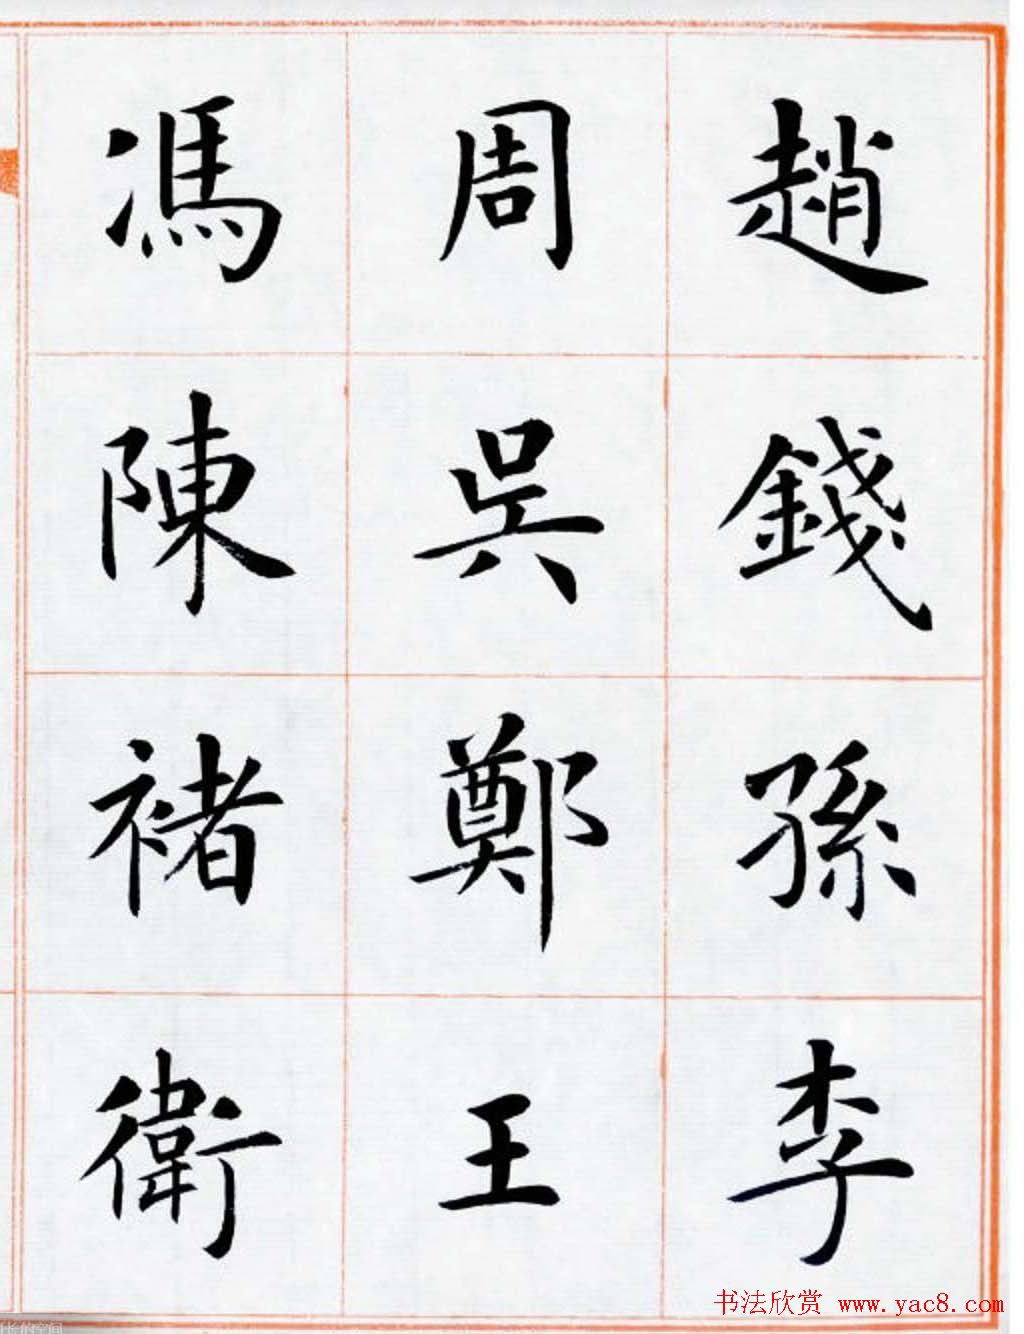 趙錢孫李
周吳鄭王
馮陳褚衛
书法欣赏 www.yac8.com